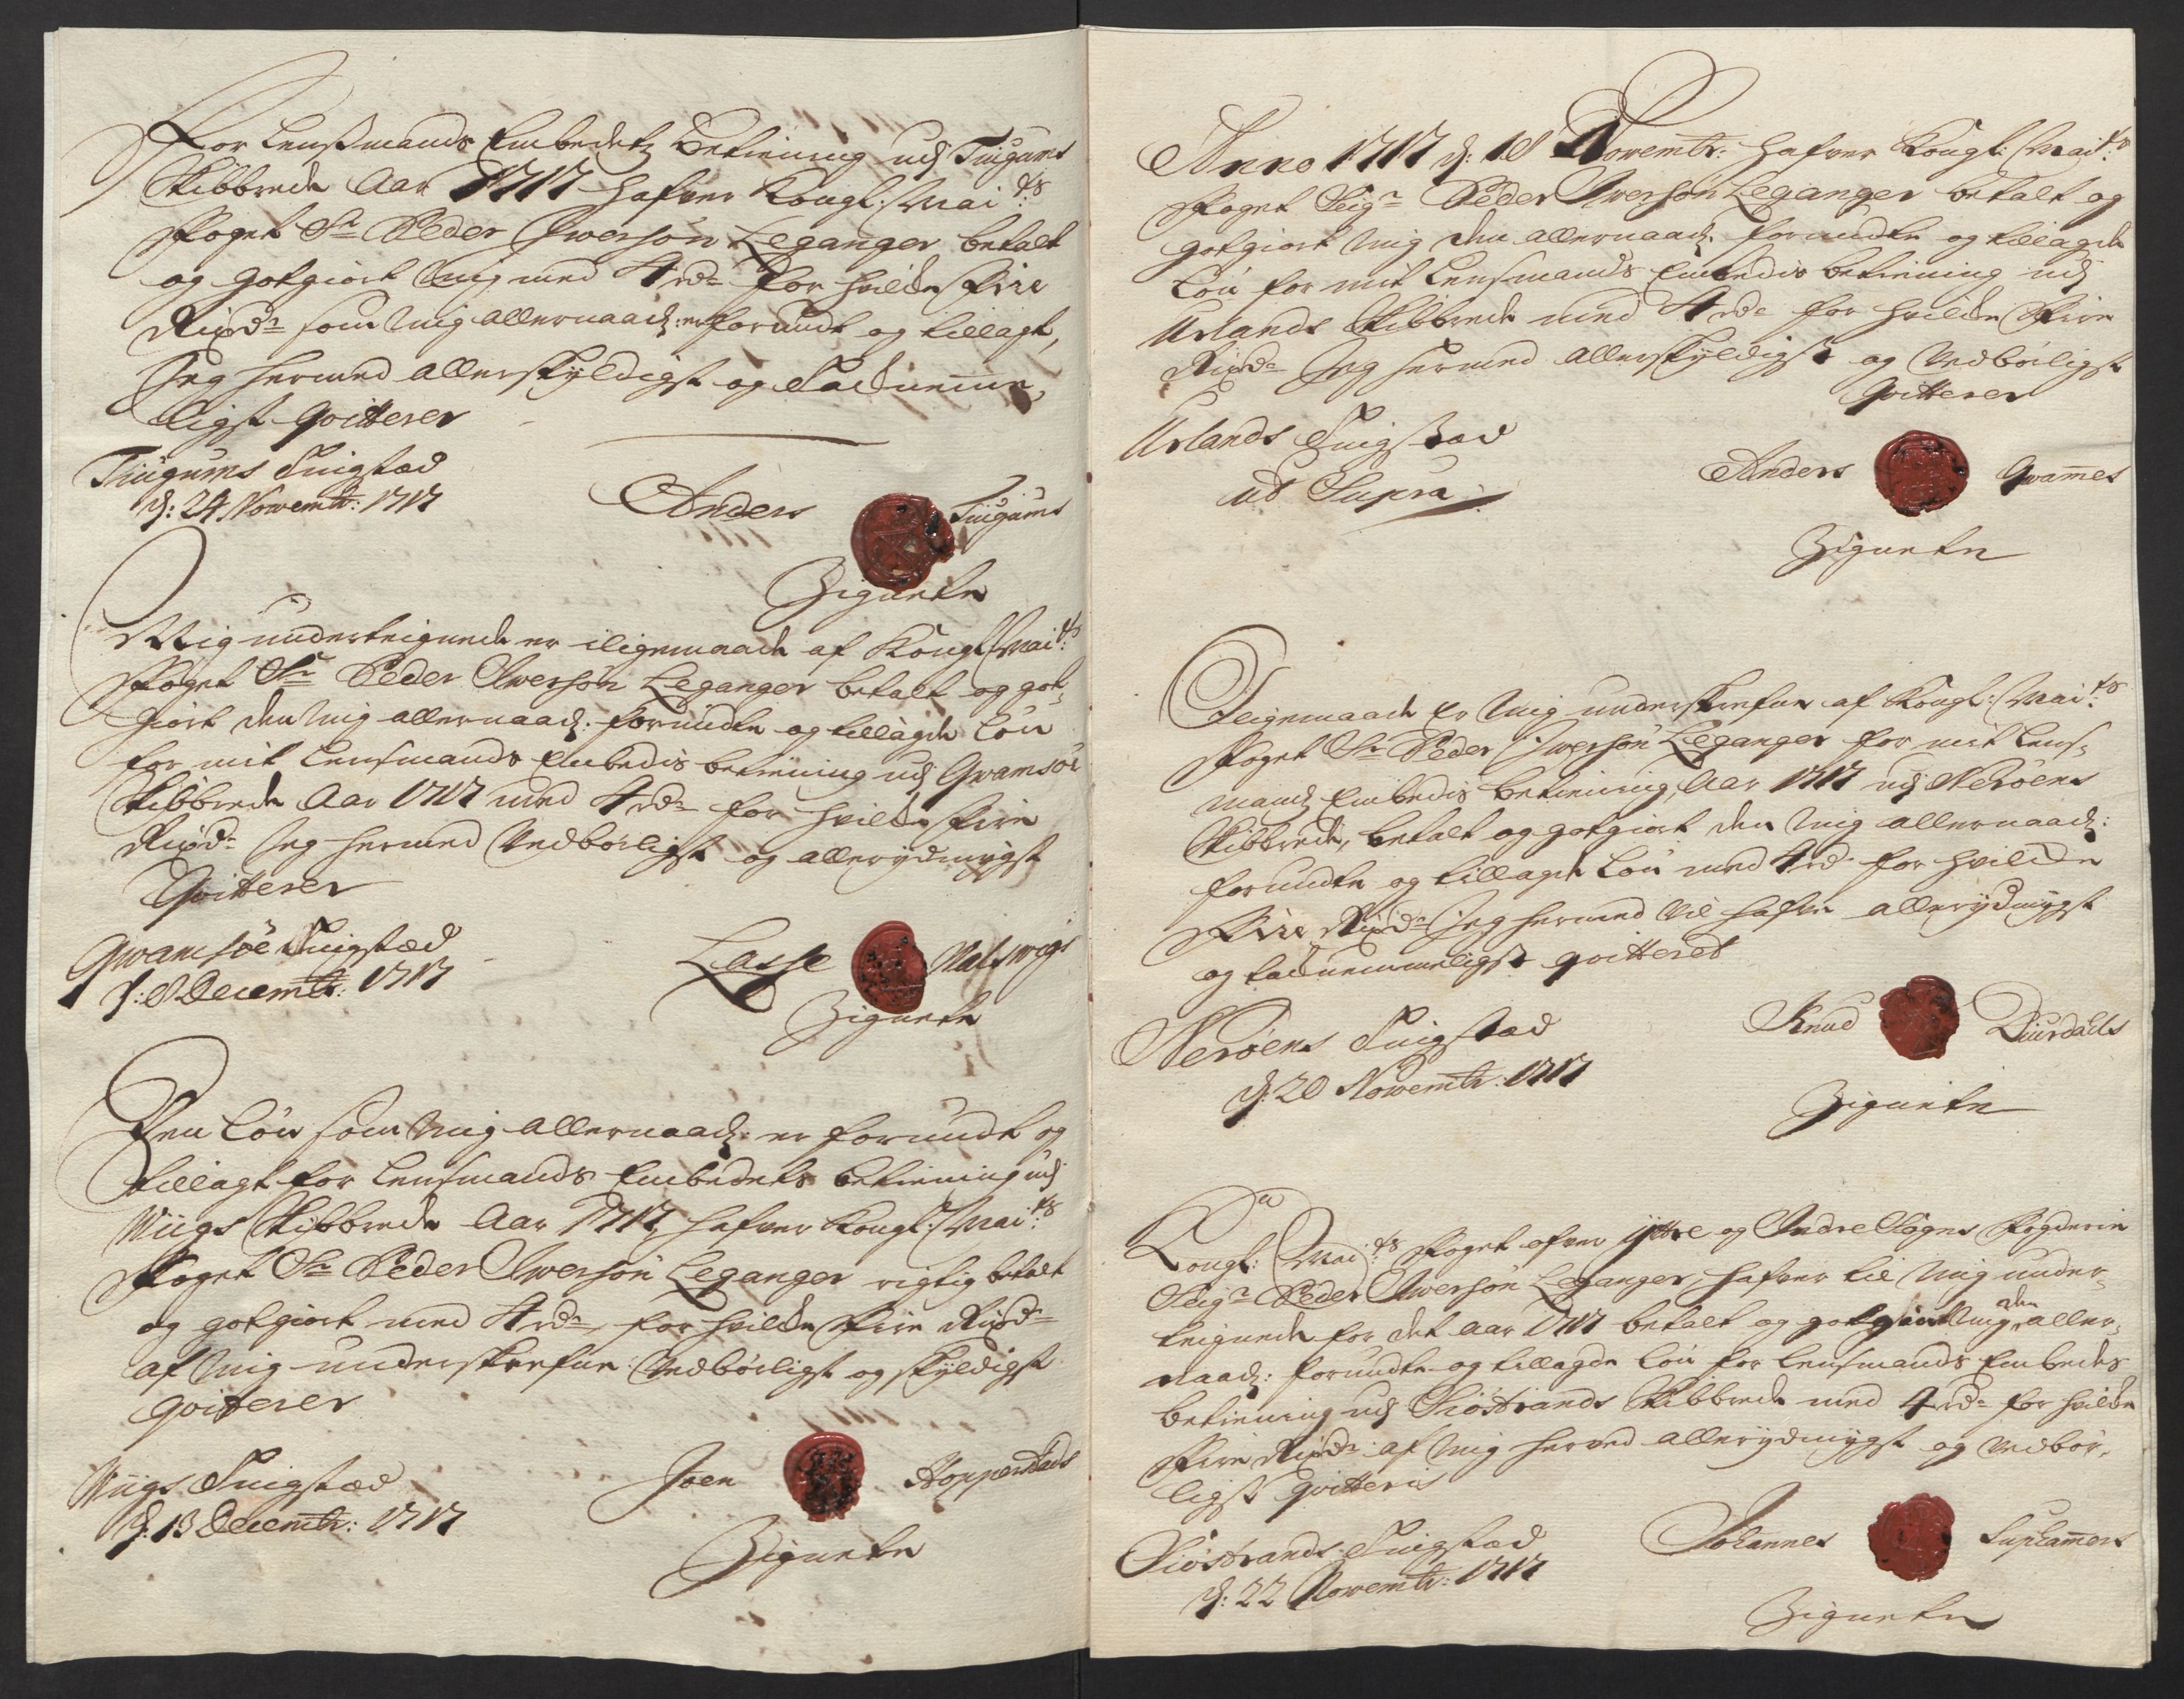 For Lensmands Embedetz Betiening udj Tuigums
Skibbrede Aar 1717 hafver Kongl: Mai:ts
Foget Sr Peder Iwersøn Leganger betalt
og gotgiort mig med 4 rdr for hvilke Fire
Rixdr som mig allernaad: er forundt og tillagt,
Jeg hermed allerskyldigst og Tacknemme,
ligst qvitterer
Tuigums Tingstæd
d: 24 Novembr: 1717
Anders Tuigums
Zignete
Mig underteignede er iligemaade af Kongl Mai:ts
Foget Sr Peder Iwersøn Leganger betalt og got,
giort den mig allernaad: forundte og tillagde Løn
for mit Lensmands Embedis betiening udj Qvamsøe
Skibbrede Aar 1717 med 4 rdr for hvilke Fire
Rixdr Jeg hermed Vedbørligst og allerydmygst
Qvitterer
Qvamsøe Tingstæd
d: 8 Decembr: 1717
Lasse Nalswigs
Zignete
Den Løn som mig allernaad: er forundt og
tillagt for Lensmands Embedets betiening udj
Wiigs Skibbrede Aar 1717, hafver Kongl: Mai:ts
Foget Sr Peder Iwersøn Leganger rigtig betalt
og gotgiort med 4 rdr, for hvilke Fire Rixdr
af mig underskrefne Vedbørligst og skyldigst
qvitterer
Wiigs Tingstæd
d: 13 Decembr: 1717
Joen Hopperstads
Zignete
Anno 1717 d: 18 Novembr: hafver Kongl: Mai:ts
Foget Seigr Peder Iwersøn Leganger betalt og
gotgiort mig den allernaad: forundte og tillagde
Løn for mit Lensmands Embedis betiening udj
Urlands Skibbrede med 4 rdr for hvilke Fire
Rixdr Jeg hermed allerskyldigst og Vedbørligst
Qvitterer
Urlands Tingstæd
ut Supra
Anders Qvammes
Zignete
Iligemaade er mig underskrefne af Kongl: Mai:ts
Foget Sr Peder Iwersøn Leganger for mit Lens,
mandz Embedis betiening, Aar 1717 udj Nerøens
Skibbrede, betalt og gotgiort den mig allernaad:
forundte og tillagde Løn med 4 rdr for hvilke
Fire Rixdr Jeg hermed vil hafve allerydmygst
og tacknemmeligst qvitteret
Nerøens Tingstæd
d: 20 Novembr: 1717
Knud Diurdals
Zignete
Kongl: Mai:ts Foget ofver Ytre og Indre Sogns Fogderie
Seigr Peder Iwersøn Leganger, hafver til mig under,
teignede for det Aar 1717 betalt og gotgiort mig den aller,
naad: forundte og tillagde Løn for Lensmands Embedes
betiening udj Siøstrands Skibbrede med 4 rdr for hvilke
Fire Rixdr af mig herved allerydmygst og Vedbør,
ligst qvitteris
Siøstrands Tingstæd
d: 22 Novembr: 1717
Johannes Suphammers
Zignete